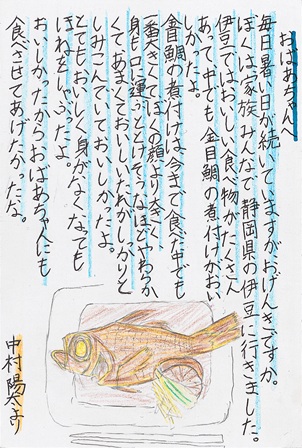 おばあちゃんへ
毎日暑い日が続いていますがおげんきですか。
ぼくは家族みんなで、静岡県の伊豆に行きました。
伊豆ではおいしい食べ物がたくさん
あって、中でも金目鯛の煮付けがおい
しかったよ。
金目鯛の煮付けは、今まで食べた中でも
一番大きくてぼくの顔より大きく
身も口に運ぶととけそうなほどやわらか
くて、あまくておいしいたれがしっかりと
しみこんでいておいしかったよ。
とてもおいしく身がなくなっても
ほねをしゃぶったよ。
おいしかったからおばあちゃんにも
食べさせてあげたかったな。
中村陽太より